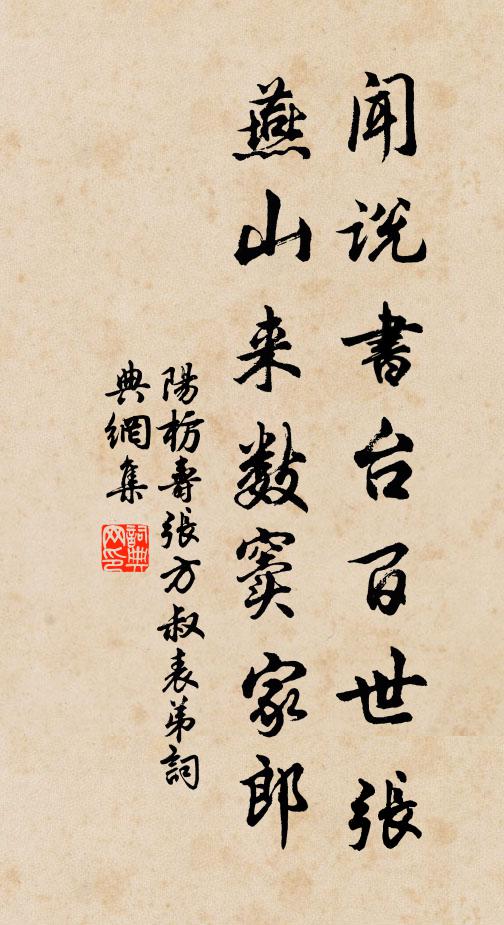 闻说書台百世张
燕山来数窦家郎
陽枋壽張方叔表弟詞
典網集
詞典網印